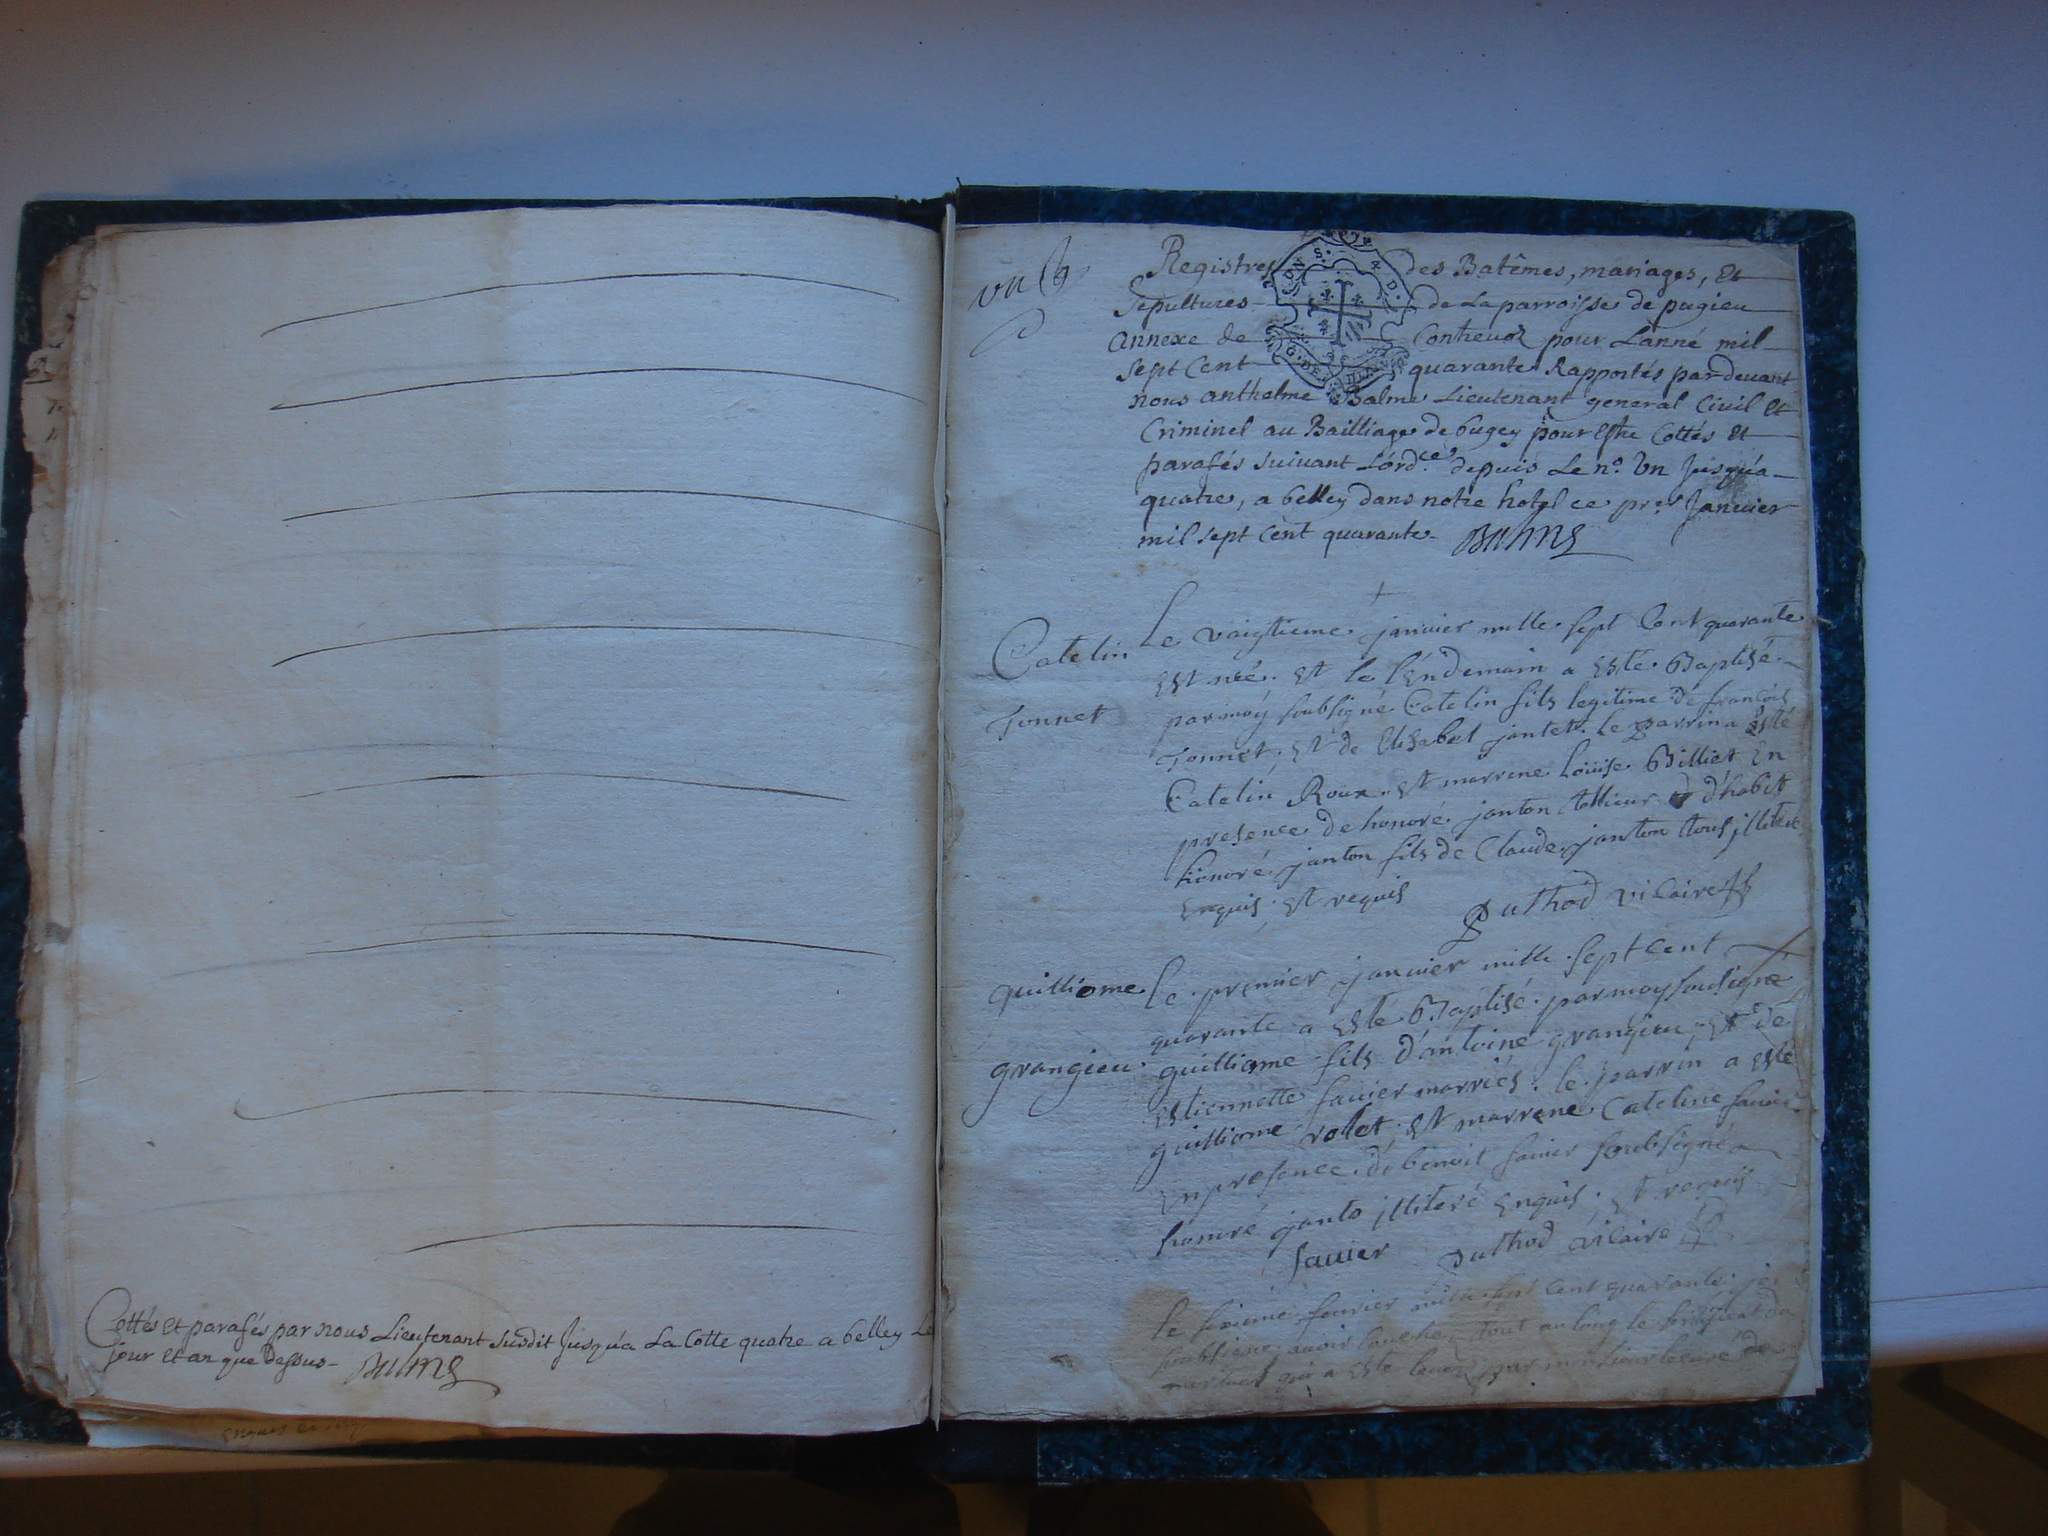 Cottés et parafés par nous Lieutenant susdit Jusqu'a La Cotte quatre a belley Le
Jour et an que dessus - Balme
un
Registres des Batêmes, mariages, Et
Sepultures de La parroisse de pugieu
Annexe de Contrevoz pour L'anné mil
sept Cent quarante Rapportés pardevant
nous anthelme Balme Lieutenant general Civil Et
Criminel au Bailliage de bugey pour Estre Cottés Et
parafés suivant L'ord.ce depuis Le n.o Un Jusqu'a
quatre, a belley dans notre hotel ce pr.er Janvier
mil sept Cent quarante - Balme
Catelin Le vaigtieme janvier mille sept Cent quarante
Est née et le l'Endemain a Esté Baptisé
Tonnet par moy soubsigné Catelin fils legitime de françois
Tonnet, Et de Elisabet jantet. le parrin a Esté
Catelin Roux. Et marrene Louise Billiet En
presence de honoré janton tallieur d'habit
honoré janton fils de Claude janton tous illiteré
Enquis, Et requis
Duthod vicaire
guilliome Le premier janvier mille sept Cent
quarante a Esté Baptisé par moy soubsigné
grangieu guilliome fils d'antoine grangieu, Et de
Estiennette favier marriés. le parrin a Esté
guilliome rollet Et marrene Cateline favier
En presence de benoit favier soubsigné
honoré janto illiteré Enquis, Et requis
favier Duthod vicaire
le sixieme fevrier mille sept cent quarante je
soubsigné avoir tout au long le
qui a Esté par monsieur le curé de